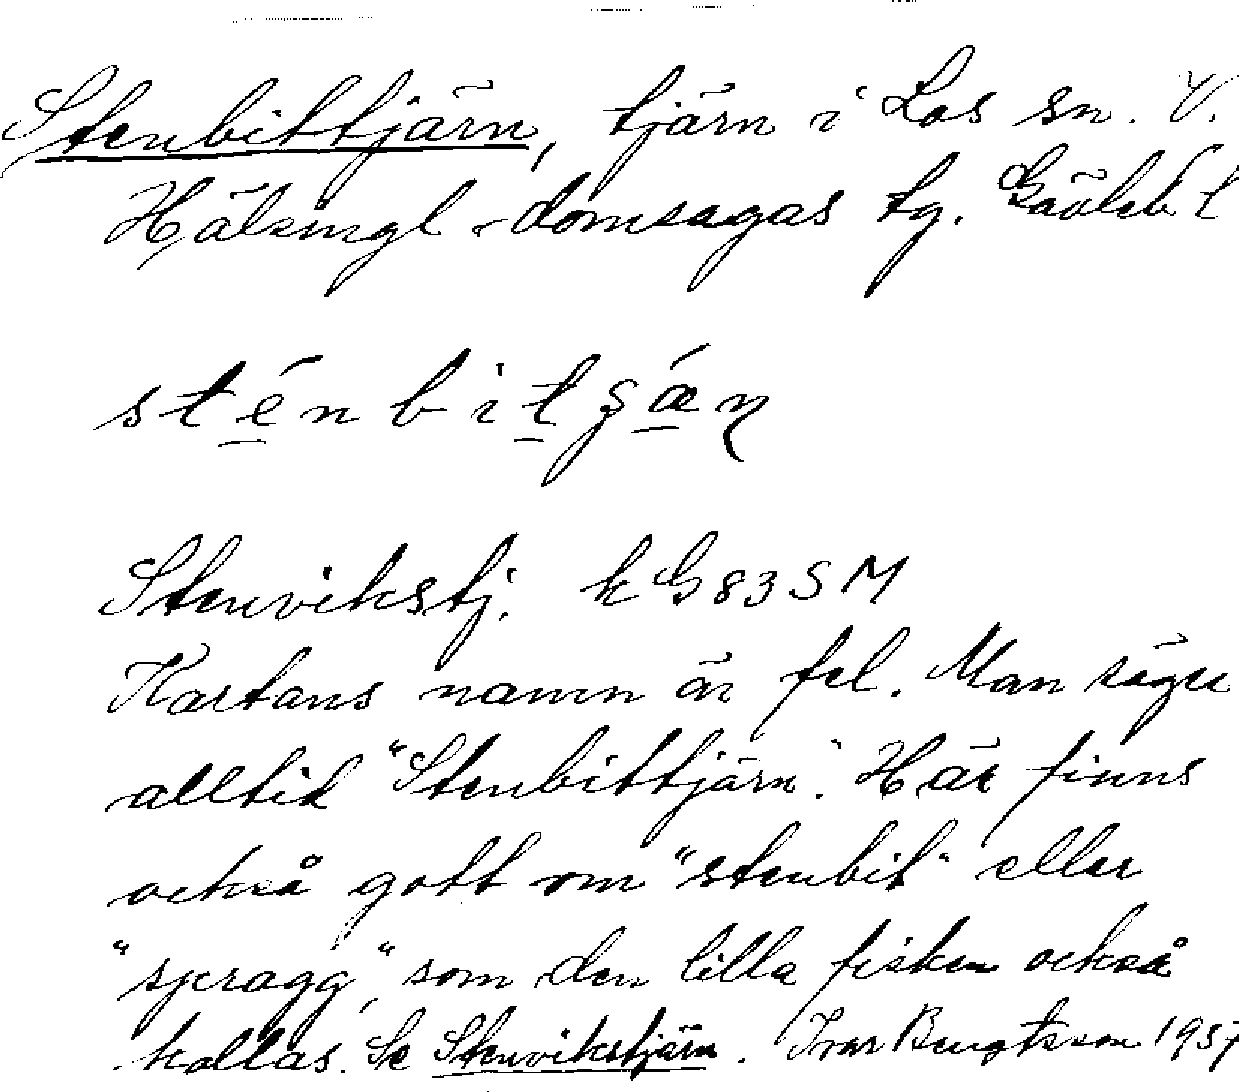 Stenbittjärn, tjärn i Los sn. V.
Hälsingl -domsagas tg. Gävleb. l
sténbitʂǽɳ
Stenvikstj. k G 83 S M
Kartans namn är fel. Man säger
alltid "Stenbittjärn". Här finns
också gott om "stenbit" eller
"spragg," som den lilla fisken också
kallas. Se Stenvikstjärn. Ivar Bengtsson 1937